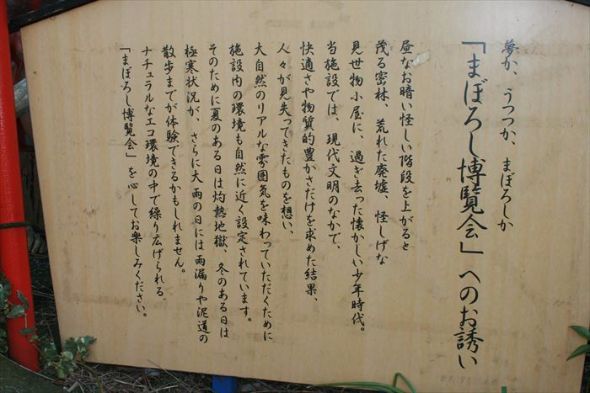 夢か、うつつか、まぼろしか
「まぼろし博覧会」へのお誘い
昼なお暗い怪しい階段を上がると
茂る密林、荒れた廃墟、怪しげな
見世物小屋に、過ぎ去った懐かしい少年時代。
当施設では、現代文明のなかで、
快適さや物質的豊かさだけを求めた結果、
人々が見失ってきたものを想い、
大自然のリアルな雰囲気を味わっていただくために
施設内の環境も自然に近く設定されています。
そのために夏のある日は灼熱地獄、冬のある日は
極寒状況が、さらに大雨の日には雨漏りや泥道の
散歩までが体験できるかもしれません。
ナチュラルなエコ環境の中で繰り広げられる
「まぼろし博覧会」を心してお楽しみください。